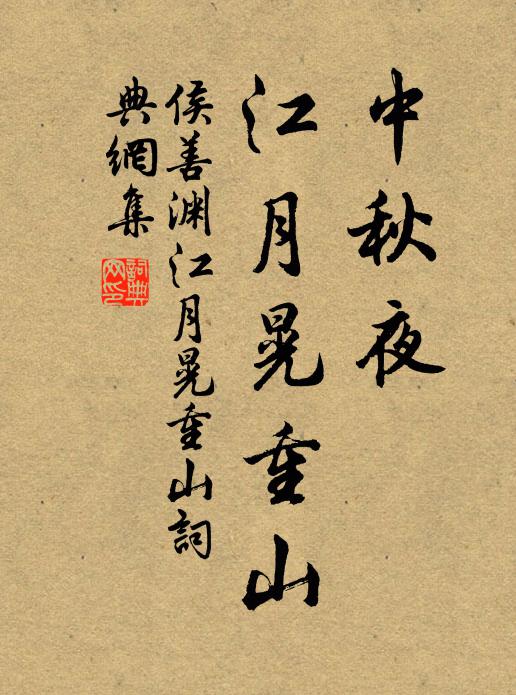 中秋夜
江月晃重山
侯善渊江月晃重山詞
典網集
詞典网印